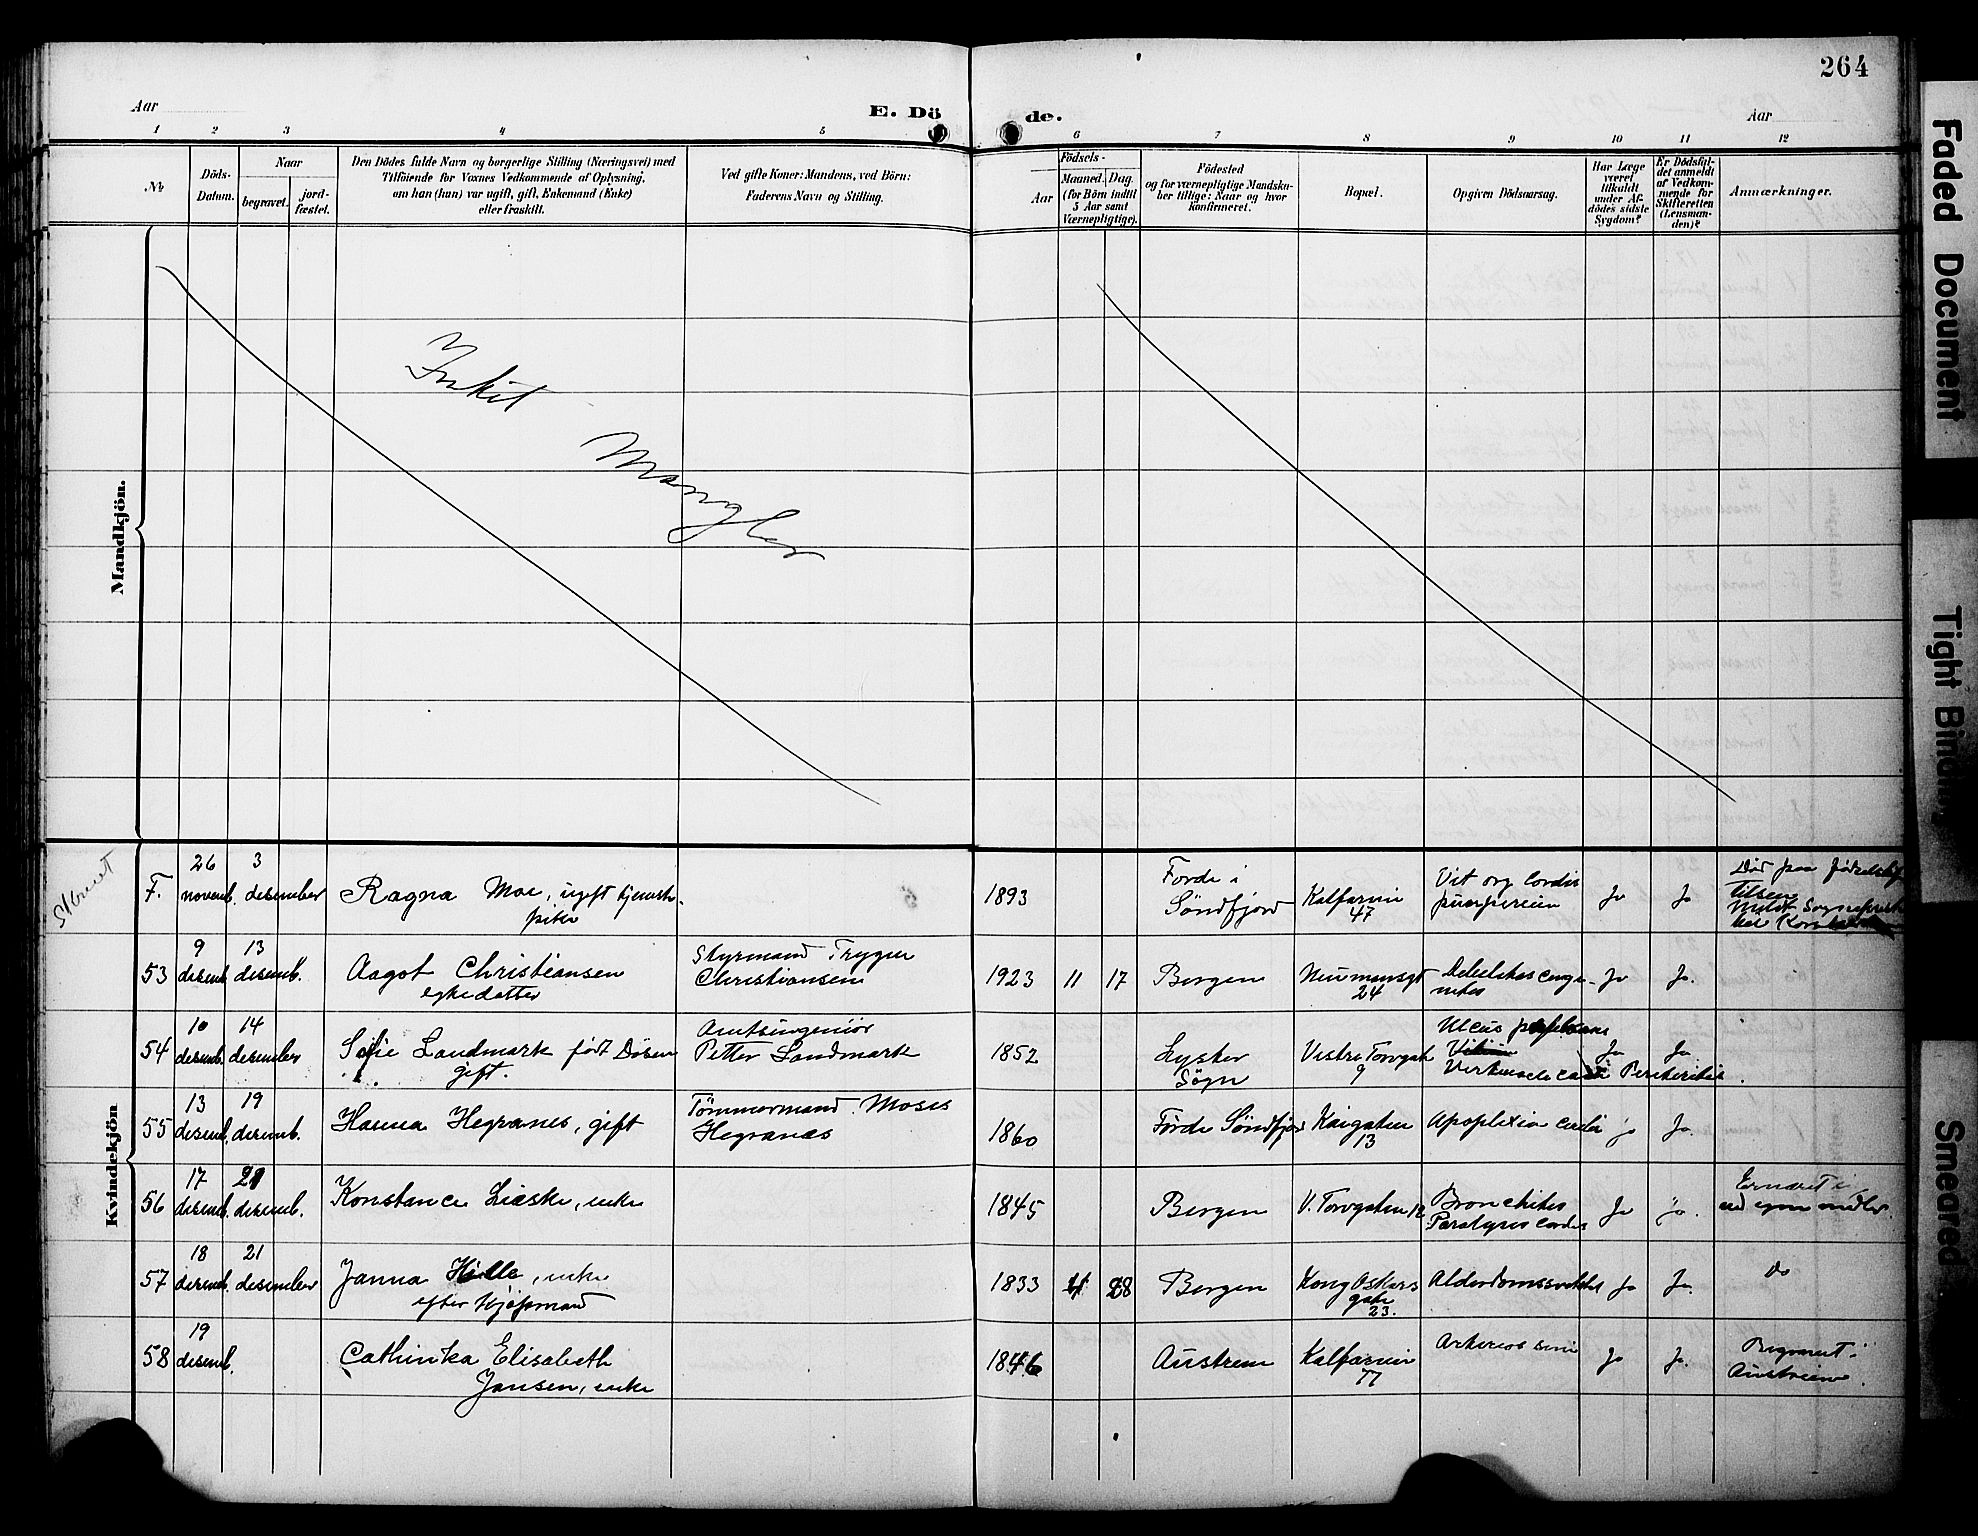 264
Aar
E. Dö
de.
Aar
1 2 3 4 5 6 7 8 9 10 11 12
№
Döds-
Datum.
Naar
begravet.
jord-
fæstet.
Den Dödes fulde Navn og borgerlige Stilling (Næringsvei) med
Tilföiende for Voxnes Vedkommende af Oplysning,
om han (hun) var ugift, gift, Enkemand (Enke)
eller fraskilt.
Ved gifte Koner: Mandens, ved Börn:
Faderens Navn og Stilling.
Födsels-
Aar
Maaned. Dag.
(for Börn indtil
5 Aar samt
Værnepligtige).
Födested
og for værnepligtige Mandska-
ber tillige: Naar og hvor
Konfirmeret.
Bopæl.
Opgiven Dödsaarsag.
Har Læge
været
tilkaldt
under Af-
dödes sidste
Sygdom?
Er Dödsfal-
det anmeldt
af Vedkom-
mende for
Skifteretten
(Lensman-
den)?
Anmærkninger.
Mandkjön.
Intet
Mangler
Kvindekjön
F. 26 novemb. 3 desember
Ragna Moe, ugift tjeneste-
pike
1893
Førde i
Søndfjord
Kalfarvei
47
Vit org cordis
Ja Ja
Død paa
53 9 desemb. 13 desemb.
Aagot Christiansen
egte datter
Styrmand Trygve
Christiansen
1923 11 17 Bergen
Neumansgt
24
Ja Ja.
54 10 desemb. 14 desember
Sofie Landmark født Døsen
gift.
Amtsingeniør
Petter Landmark
1852
Lyster
Sogn
Vestre Torvgate
9
Ulcus
Ja Ja
55 13 desemb. 19 desemb.
Hanna Hegranes, gift
Tømmermand Moses
Hegranes
1860 Førde Søndfjor
Kaigaten
13
Apoplexia
ja Ja.
56 17 desemb. 21 desemb.
Konstance Lieske, enke
1845 Bergen V. Torvgaten 12
Bronchites
Paralysis cordis
Ja ja.
57 18 desemb. 21 desember
Janna Hille, enke
efter Kjøpmand
1833 4 28 Bergen
Kong Oskars
gate
23.
Alderdomssvekkelse
Ja Ja.
Do
58 19 desemb.
Cathinka Elisabeth
Jansen, enke
1846 Austrem
Kalfarvei
77
Ja Ja.
Begravet i
Faded Document
Tight Bindin
Smeared